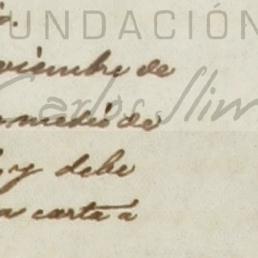 FUNDACIÓN
Carlos Slim
viembre de
medio de
y debe
a carta á